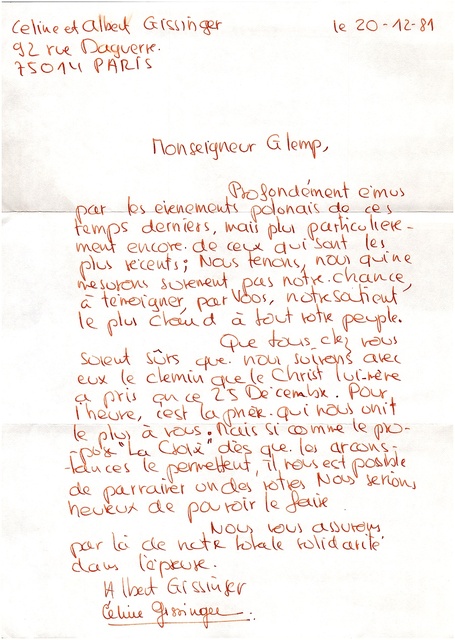 Celine et Albert Gissinger
le 20-12-81
92 rue Daguerre.
75014 PARIS
Monseigneur Glemp,
Profondément émus
par les evenements polonais de ces
temps derniers, mais plus particuliere-
ment encore de ceux qui sont les
plus récents; Nous tenons, nous qui ne
mesurons surement pas notre chance,
à témoigner, par Vous, notre soutient
le plus chaud à tout votre peuple.
Que tous chez vous
soient sûrs que nous suivons avec
eux le chemin que le Christ lui-même
a pris en ce 25 Décembre. Pour
l'heure, c'est la prière qui nous unit
le plus à vous. Mais si comme le pro-
pose "La Croix" dès que les circons-
tances le permettent, il nous est possible
de parrainer un des votres Nous serions
heureux de pouvoir le faire.
Nous vous assurons
par là de notre totale solidarité
dans l'épreuve.
Albert Gissinger
Céline Gissinger.